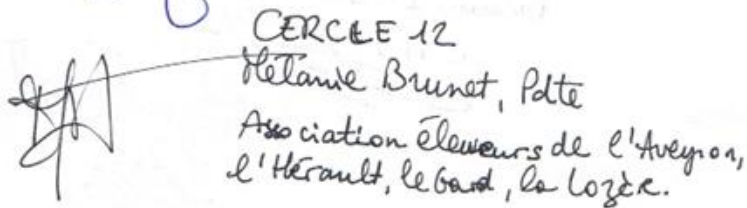 CERCLE 12
Mélanie Brunet, Pdte
Association éleveurs de l'Aveyron,
l'Hérault, le Gard, la Lozère.